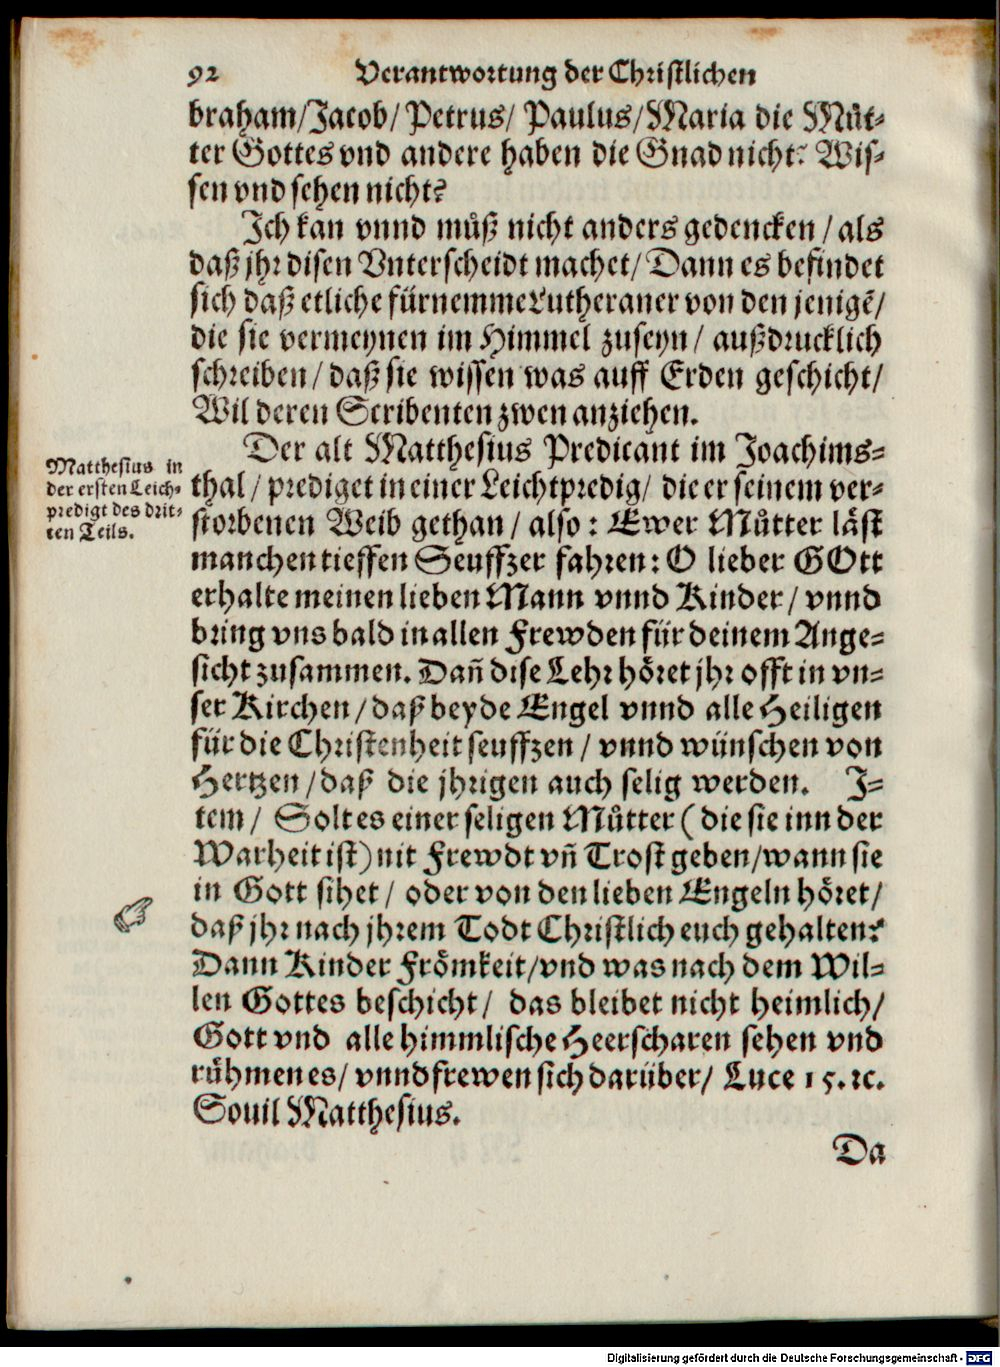 92 Verantwortung der Christlichen
braham/Jacob/ Petrus/ Paulus/Maria die Můt-
ter Gottes vnd andere haben die Gnad nicht? Wis-
sen vnd sehen nicht?
Ich kan vnnd můß nicht anders gedencken / als
daß jhr disen Vnterscheidt machet/ Dann es befindet
sich daß etliche fürnemme Lutheraner von den jenigẽ/
die sie vermeynen im Himmel zuseyn / außdrucklich
schreiben / daß sie wissen was auff Erden geschicht/
Wil deren Scribenten zwen anziehen.
Der alt Matthesius Predicant im Joachims-
Matthesius in
der ersten Leich-
predigt des drit-
ten Teils.
thal / prediget in einer Leichtpredig/ die er seinem ver-
storbenen Weib gethan / also : Ewer Můtter läst
manchen tieffen Seuffzer fahren: O lieber GOtt
erhalte meinen lieben Mann vnnd Kinder / vnnd
bring vns bald in allen Frewden für deinem Ange-
sicht zusammen. Dañ dise Lehr höret jhr offt in vn-
ser Kirchen / daß beyde Engel vnnd alle Heiligen
für die Christenheit seuffzen / vnnd wünschen von
Hertzen / daß die jhrigen auch selig werden. I-
tem / Solt es einer seligen Můtter ( die sie inn der
Warheit ist) nit Frewdt vñ Trost geben/wann sie
in Gott sihet / oder von den lieben Engeln höret/
daß jhr nach jhrem Todt Christlich euch gehalten?
Dann Kinder Frömkeit/vnd was nach dem Wil-
len Gottes beschicht/ das bleibet nicht heimlich/
Gott vnd alle himmlische Heerscharen sehen vnd
růhmen es/ vnnd frewen sich darüber/ Luce 15. ꝛc.
Souil Matthesius.
Da
Digitalisierung gefördert durch die Deutsche Forschungsgemeinschaft - DFG